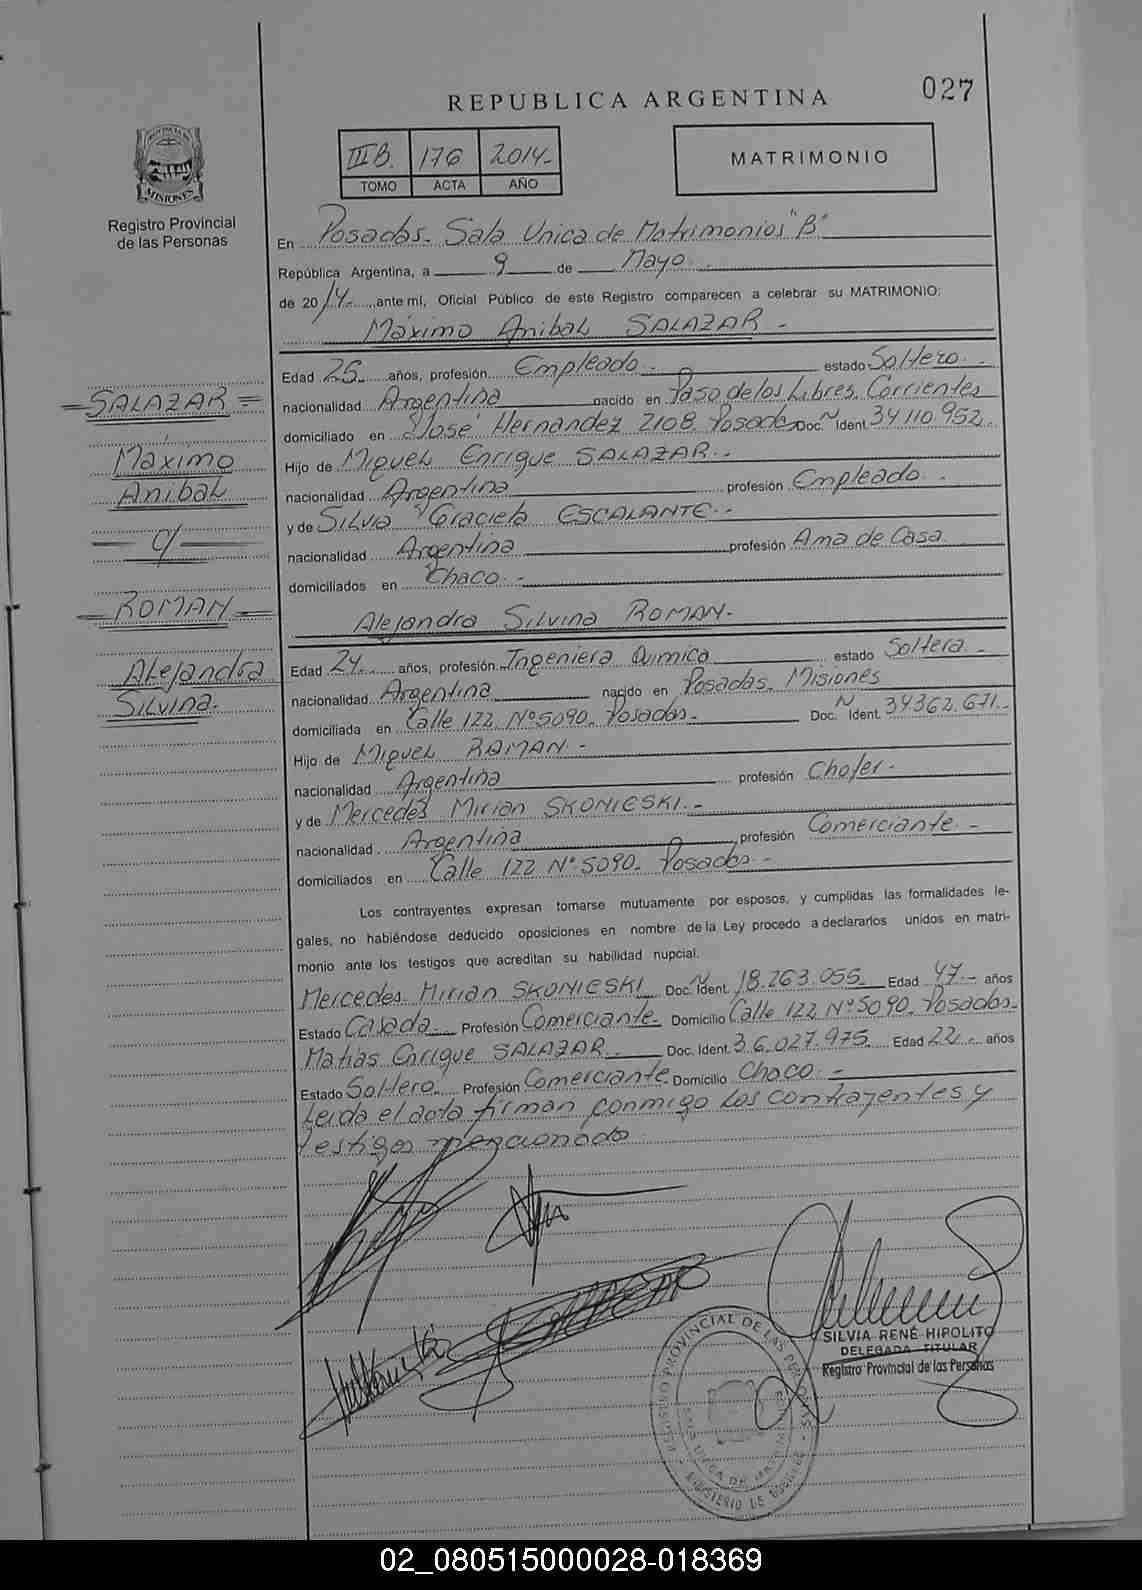 027
REPUBLICA ARGENTINA
III B. 176 2014-
TOMO ACTA AÑO
MATRIMONIO
PROVINCIA DE
MISIONES
Registro Provincial
de las Personas
En Posadas- Sala Unica de Matrimonios "B"
República Argentina, a 9 de Mayo.-
de 2014-, ante mí, Oficial Público de este Registro comparecen a celebrar su MATRIMONIO:
Máximo Anibal SALAZAR -
Edad 25.- años, profesión Empleado.- estado Soltero.-
=SALAZAR=
nacionalidad Argentina nacido en Paso de los Libres, Corrientes
domiciliado en José Hernandez 2108 Posadas Doc. N Ident. 34.110.952.-
Máximo
Hijo de Miguel Enrique SALAZAR.-
Anibal
nacionalidad Argentina profesión Empleado.-
y de Silvia Graciela ESCALANTE.-
c/
nacionalidad Argentina profesión Ama de Casa
domiciliados en Chaco.-
=ROMAN=
Alejandra Silvina ROMAN.-
Alejandra
Edad 24.- años, profesión Ingeniera Quimica estado Soltera.-
Silvina.-
nacionalidad Argentina nacido en Posadas, Misiones
domiciliada en Calle 122 Nº 5090- Posadas.- Doc. N Ident. 34362.671.-
Hijo de Miguel ROMAN.-
nacionalidad Argentina profesión Chofer.-
y de Mercedes Mirian SKONIESKI.-
nacionalidad Argentina profesión Comerciante.-
domiciliados en Calle 122 Nº 5090- Posadas.-
Los contrayentes expresan tomarse mutuamente por esposos, y cumplidas las formalidades le-
gales, no habiéndose deducido oposiciones en nombre de la Ley procedo a declararlos unidos en matri-
monio ante los testigos que acreditan su habilidad nupcial.
Mercedes Mirian SKONIESKI Doc. N Ident. 18.263.055.- Edad 47.- años
Estado Casada.- Profesión Comerciante.- Domicilio Calle 122 Nº 5090- Posadas.-
Matias Enrique SALAZAR.- Doc. Ident. 36.027.975.- Edad 22.- años
Estado Soltero.- Profesión Comerciante.- Domicilio Chaco.-
Leida el acta firman conmigo los contrayentes y
testigos mencionado.
SILVIA RENÉ HIPOLITO
DELEGADA TITULAR
Registro Provincial de las Personas
REGISTRO PROVINCIAL DE LAS PERSONAS
MINISTERIO DE GOBIERNO
02_080515000028-018369